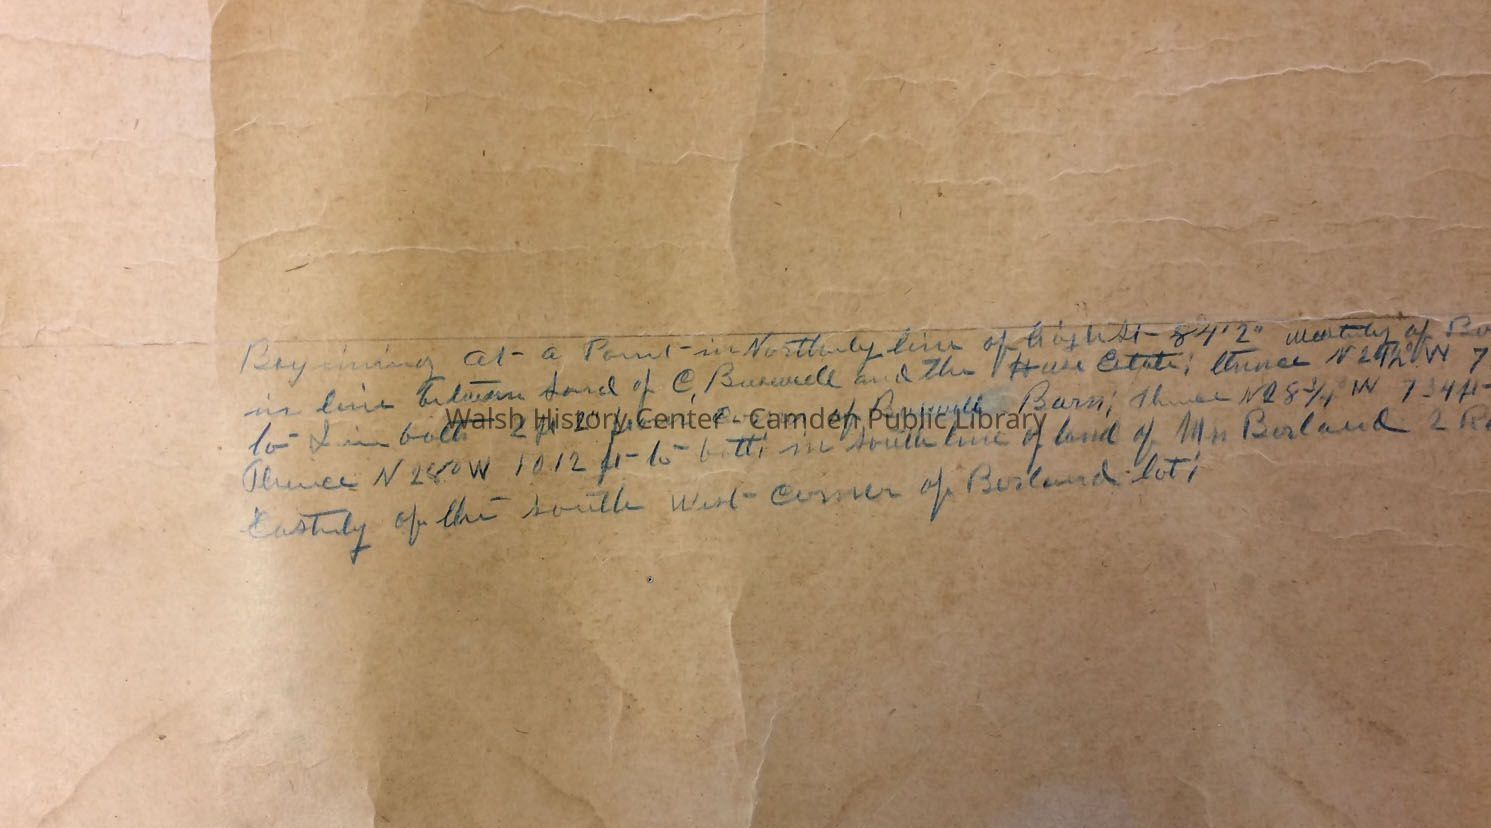 Beginning at a Point in Northerly line of High St 84'2" westerly of Bo
in line between land of C, Buswell and the Huse Estate; thence N 29½° W 7
to Iron bolt 2 ft 2" from corner of Buswell Barn; thence N 28¾ W 734 ft
Thence N 28° W 1012 ft to bolt; in south line of land of Mr Borland 2 R
Easterly of the South West corner of Borland lot;
Walsh History Center - Camden Public Library